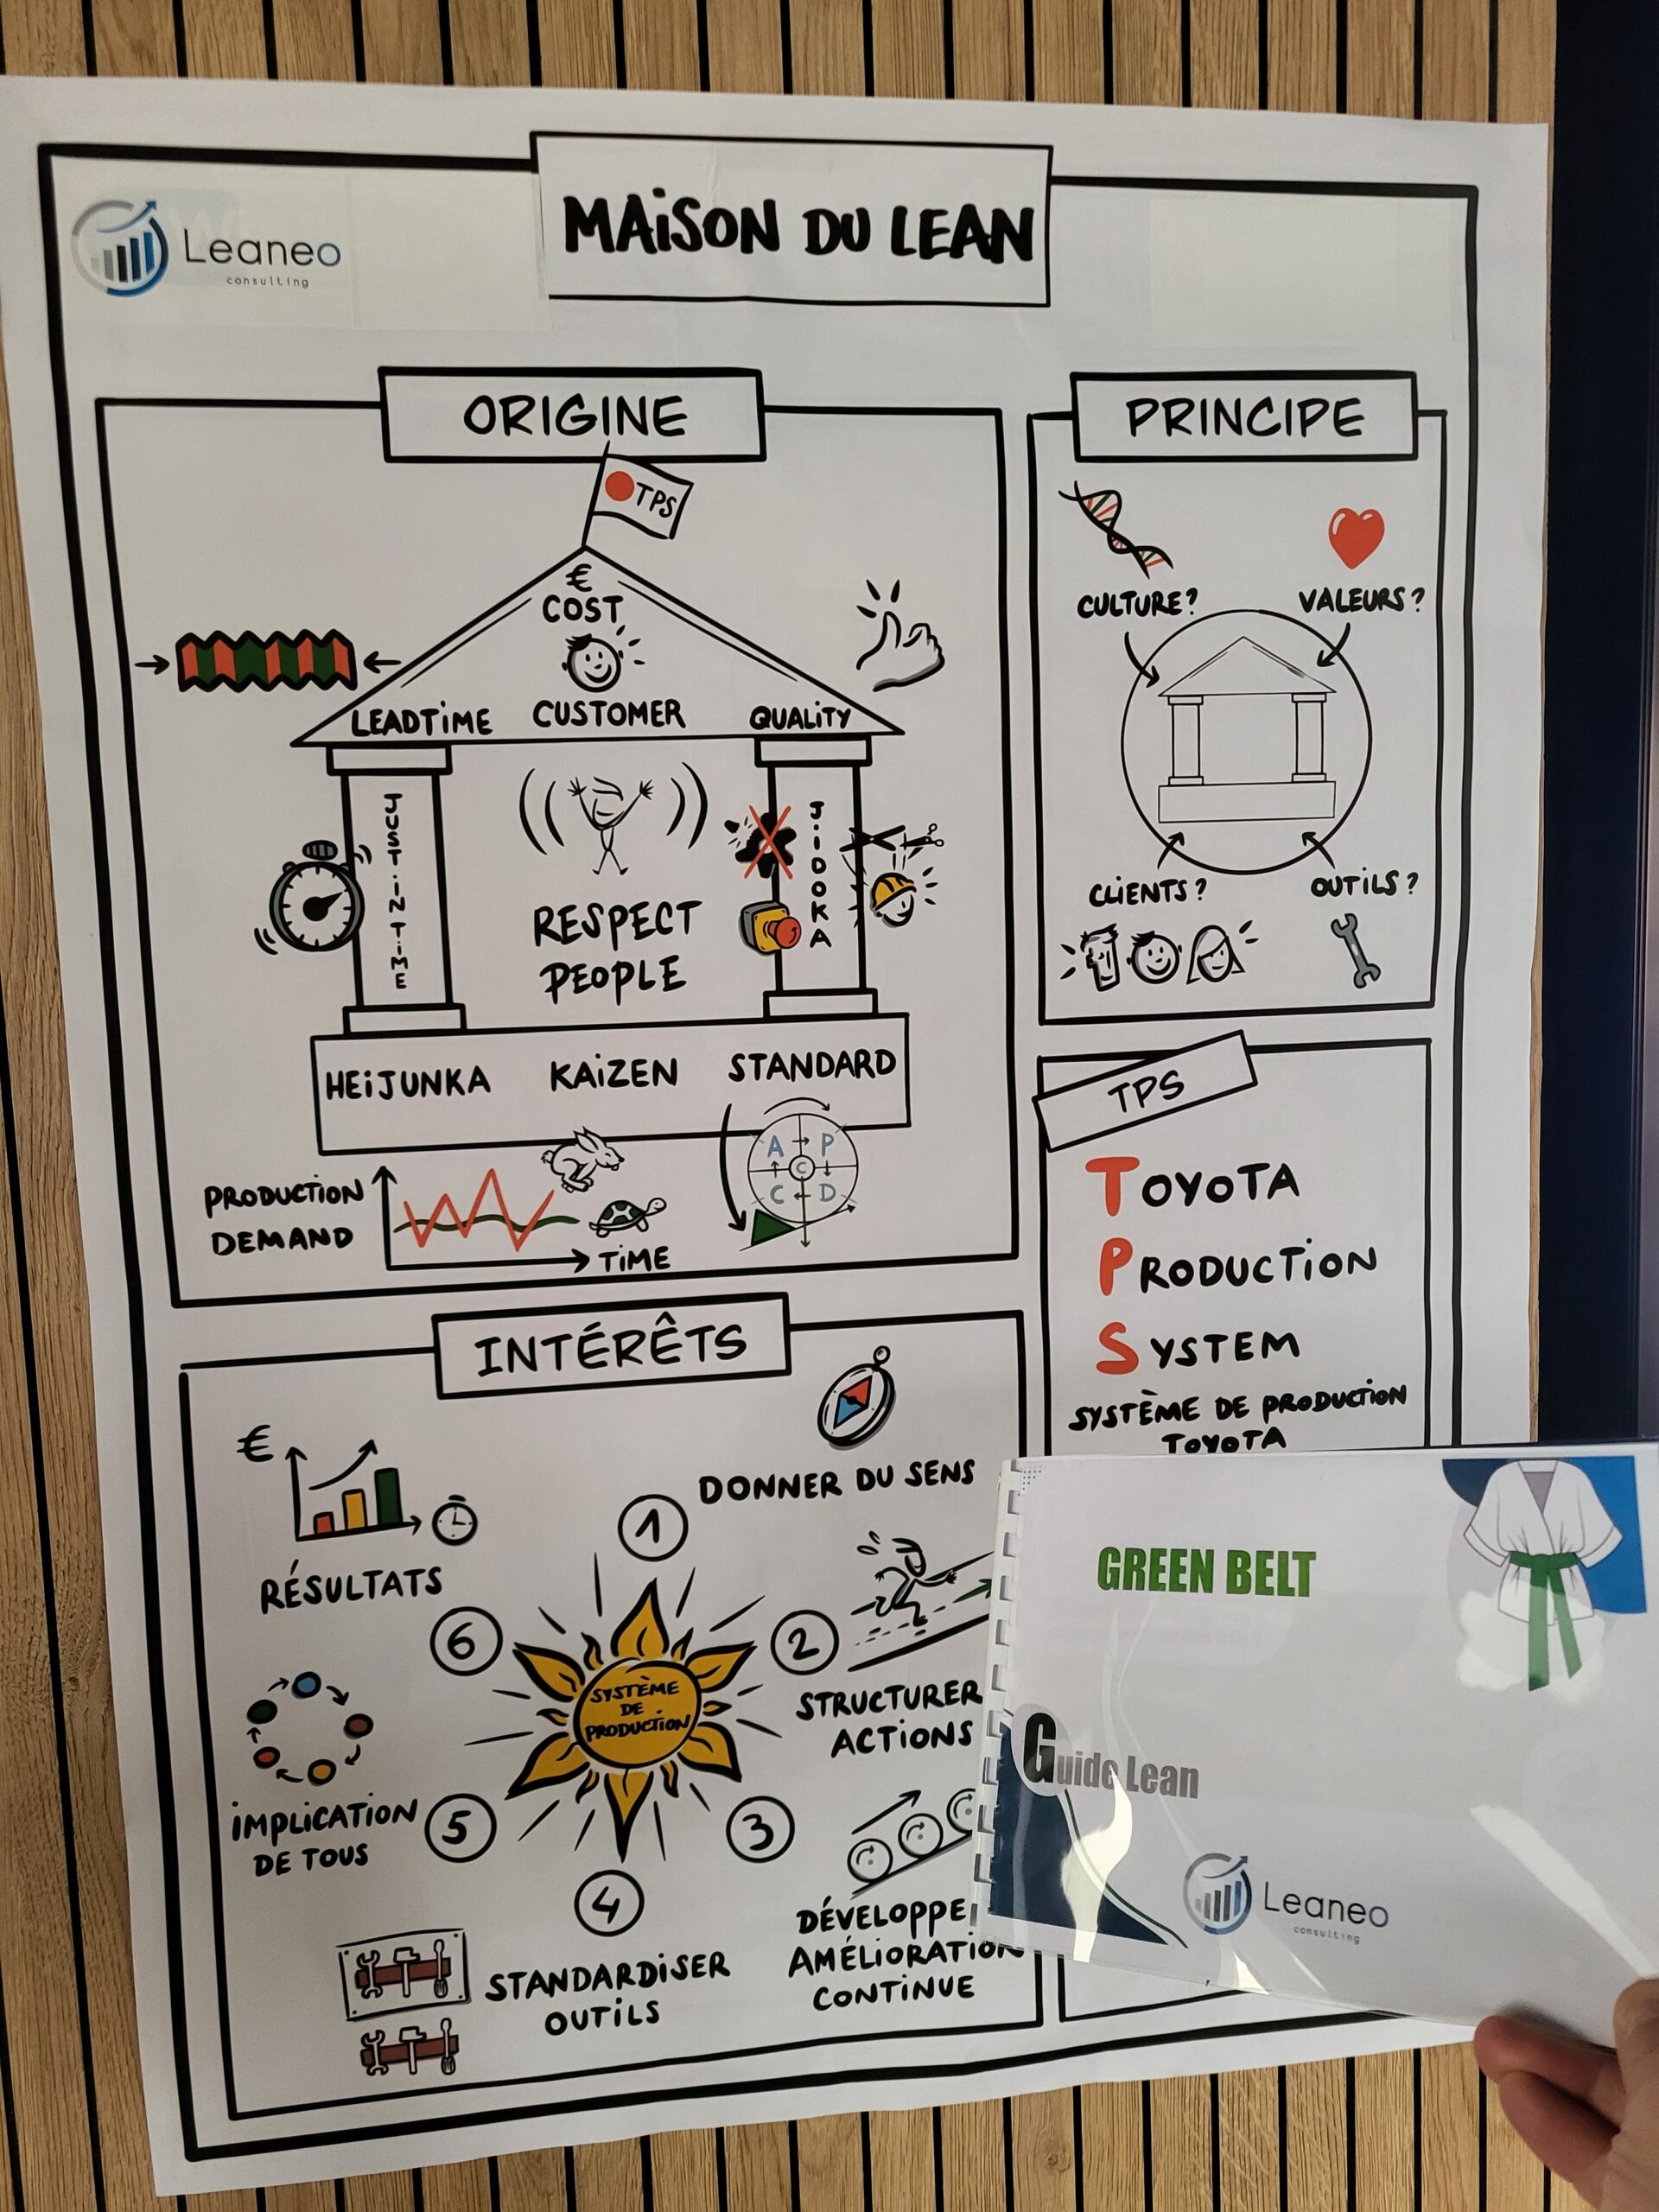 MAiSON DU LEAN
Leaneo
consulting
ORIGINE
TPS
€
COST
LEADTiME CUSTOMER QUALiTY
JUST iN TiME
JiDOKA
RESPECT
PEOPLE
HEiJUNKA KAiZEN STANDARD
A P
C
C D
PRODUCTiON
DEMAND
TiME
PRINCIPE
CULTURE? VALEURS?
CLiENTS? OUTiLS?
TPS
TOYOTA
PRODUCTiON
SYSTEM
SYSTÈME DE PRODUCTiON
TOYOTA
INTÉRÊTS
€
DONNER DU SENS
1
RÉSULTATS
2
STRUCTURER
ACTiONS
6
SYSTÈME
DE
PRODUCTiON
iMPLiCATiON
DE TOUS
5
3
DÉVELOPPE
AMÉLiORATiON
CONTiNUE
4
STANDARDiSER
OUTiLS
GREEN BELT
Guide Lean
Leaneo
consulting